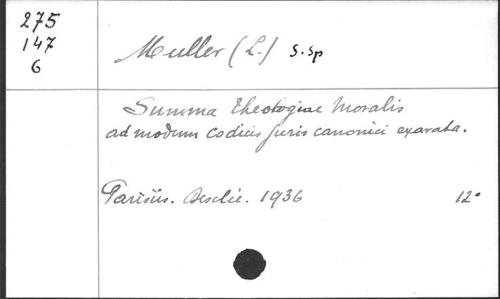 275
147
6
Muller (L.) S. Sp
Summa Theologiae Moralis
ad modum Codicis Juris canonici exarata.
Parisiis. Desclée. 1936 12°